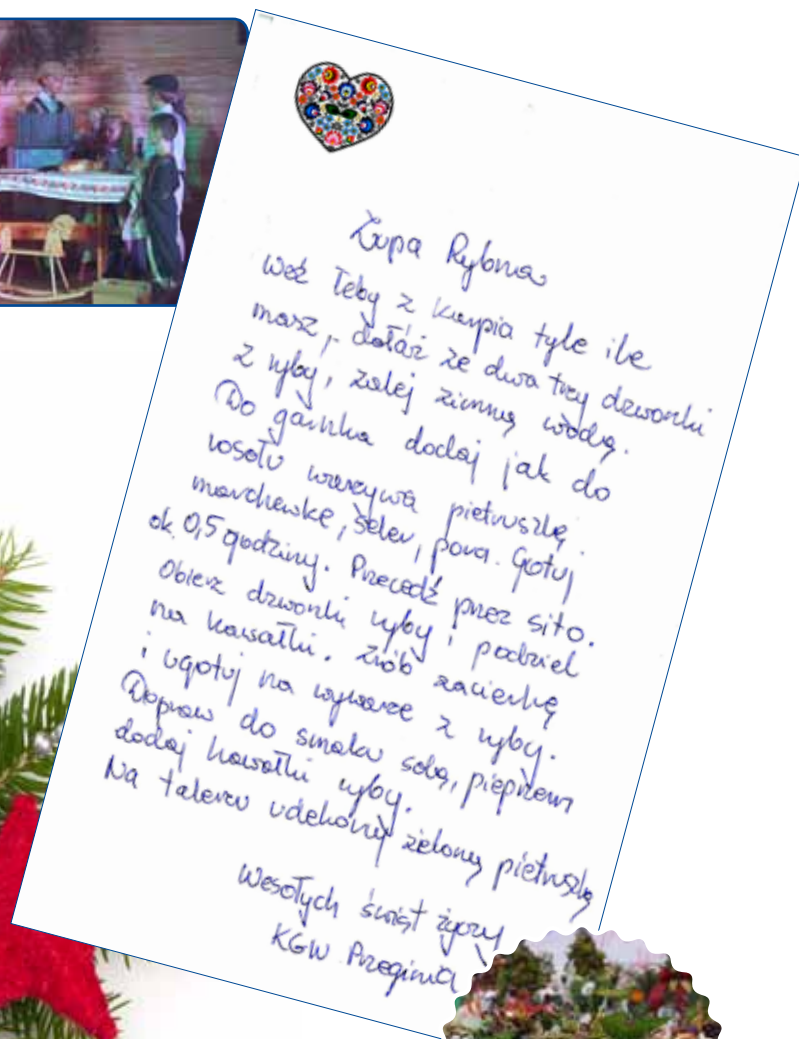 Zupa Rybna
Weź łeby z karpia tyle ile
masz, dołóż ze dwa trzy dzwonki
z ryby, zalej zimną wodą.
Do garnka dodaj jak do
rosołu warzywa pietruszkę.
marchewkę, seler, pora. Gotuj
ok. 0,5 godziny. Przecedź przez sito.
Obierz dzwonki ryby i podziel
na kawałki. Zrób zacierkę
i ugotuj na wywarze z ryby.
Dopraw do smaku solą, pieprzem
dodaj kawałki ryby.
Na talerzu udekoruj zieloną pietruszką
Wesołych świąt życzy
KGW Przeginia